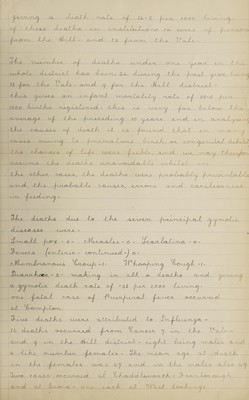 giving a death rate of 12.2 per 1000 living.
of these deaths in institutions 10 were of persons
from the Hill and 12 from the Vale.
The number of deaths under one year in the
whole district has been 22 during the past year being
13 for the Vale and 9 for the Hill district.
this gives an infant mortality rate of per
1000 births registered. this is very far below the
average of the preceding 10 years and in analysing
the causes of death it is found that in many
cases owing to premature birth or congenital debility
the chances of life were feeble and we may therefore
assume the deaths unavoidable whilst in
the other cases the deaths were probably preventable
and the probable causes errors and carelessness
in feeding.
The deaths due to the seven principal zymotic
diseases were -
Small pox - 0. Measles - 0. Scarlatina - 0.
Fevers (enteric - continued) 0.
Membranous Croup - 1. Whooping Cough - 1.
Diarrhoea - 2. making in all 4 deaths and giving
a zymotic death rate of per 1000 living.
one fatal case of Puerperal fever occurred
at Compton.
Five deaths were attributed to Influenza -
16 deaths occurred from Cancer 7 in the Vale -
and 9 in the Hill district - eight being males and
a like number females. The mean age at death
in the females was 67 and in the males also 67
Two cases occurred at Chaddleworth - Farnborough
and at one each at West